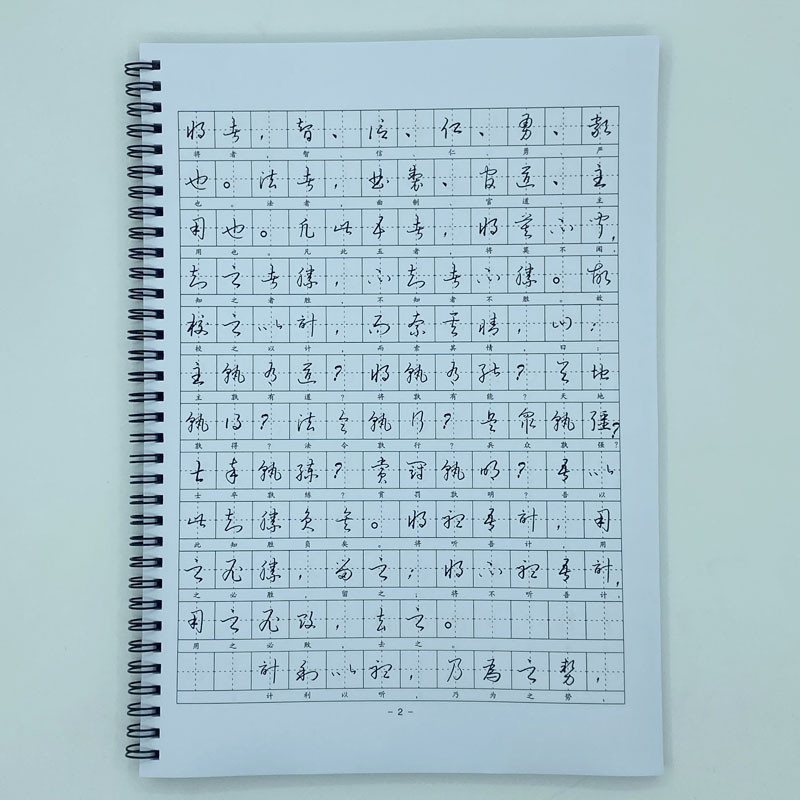 將者，智、信、仁、勇、嚴
将者，智、信、仁、勇、严
也。法者，曲製、官道、主
也。法者，曲制、官道、主
用也。凡此五者，將莫不聞，
用也。凡此五者，将莫不闻，
知之者勝，不知者不勝。故
知之者胜，不知者不胜。故
校之以計，而索其情，曰：
校之以计，而索其情，曰：
主孰有道？將孰有能？天地
主孰有道？将孰有能？天地
孰得？法令孰行？兵眾孰彊？
孰得？法令孰行？兵众孰强？
士卒孰練？賞罰孰明？吾以
士卒孰练？赏罚孰明？吾以
此知勝負矣。將聽吾計，用
此知胜负矣。将听吾计，用
之必勝，留之；將不聽吾計，
之必胜，留之；将不听吾计，
用之必敗，去之。
用之必败，去之。
計利以聽，乃為之勢，
计利以听，乃为之势，
- 2 -